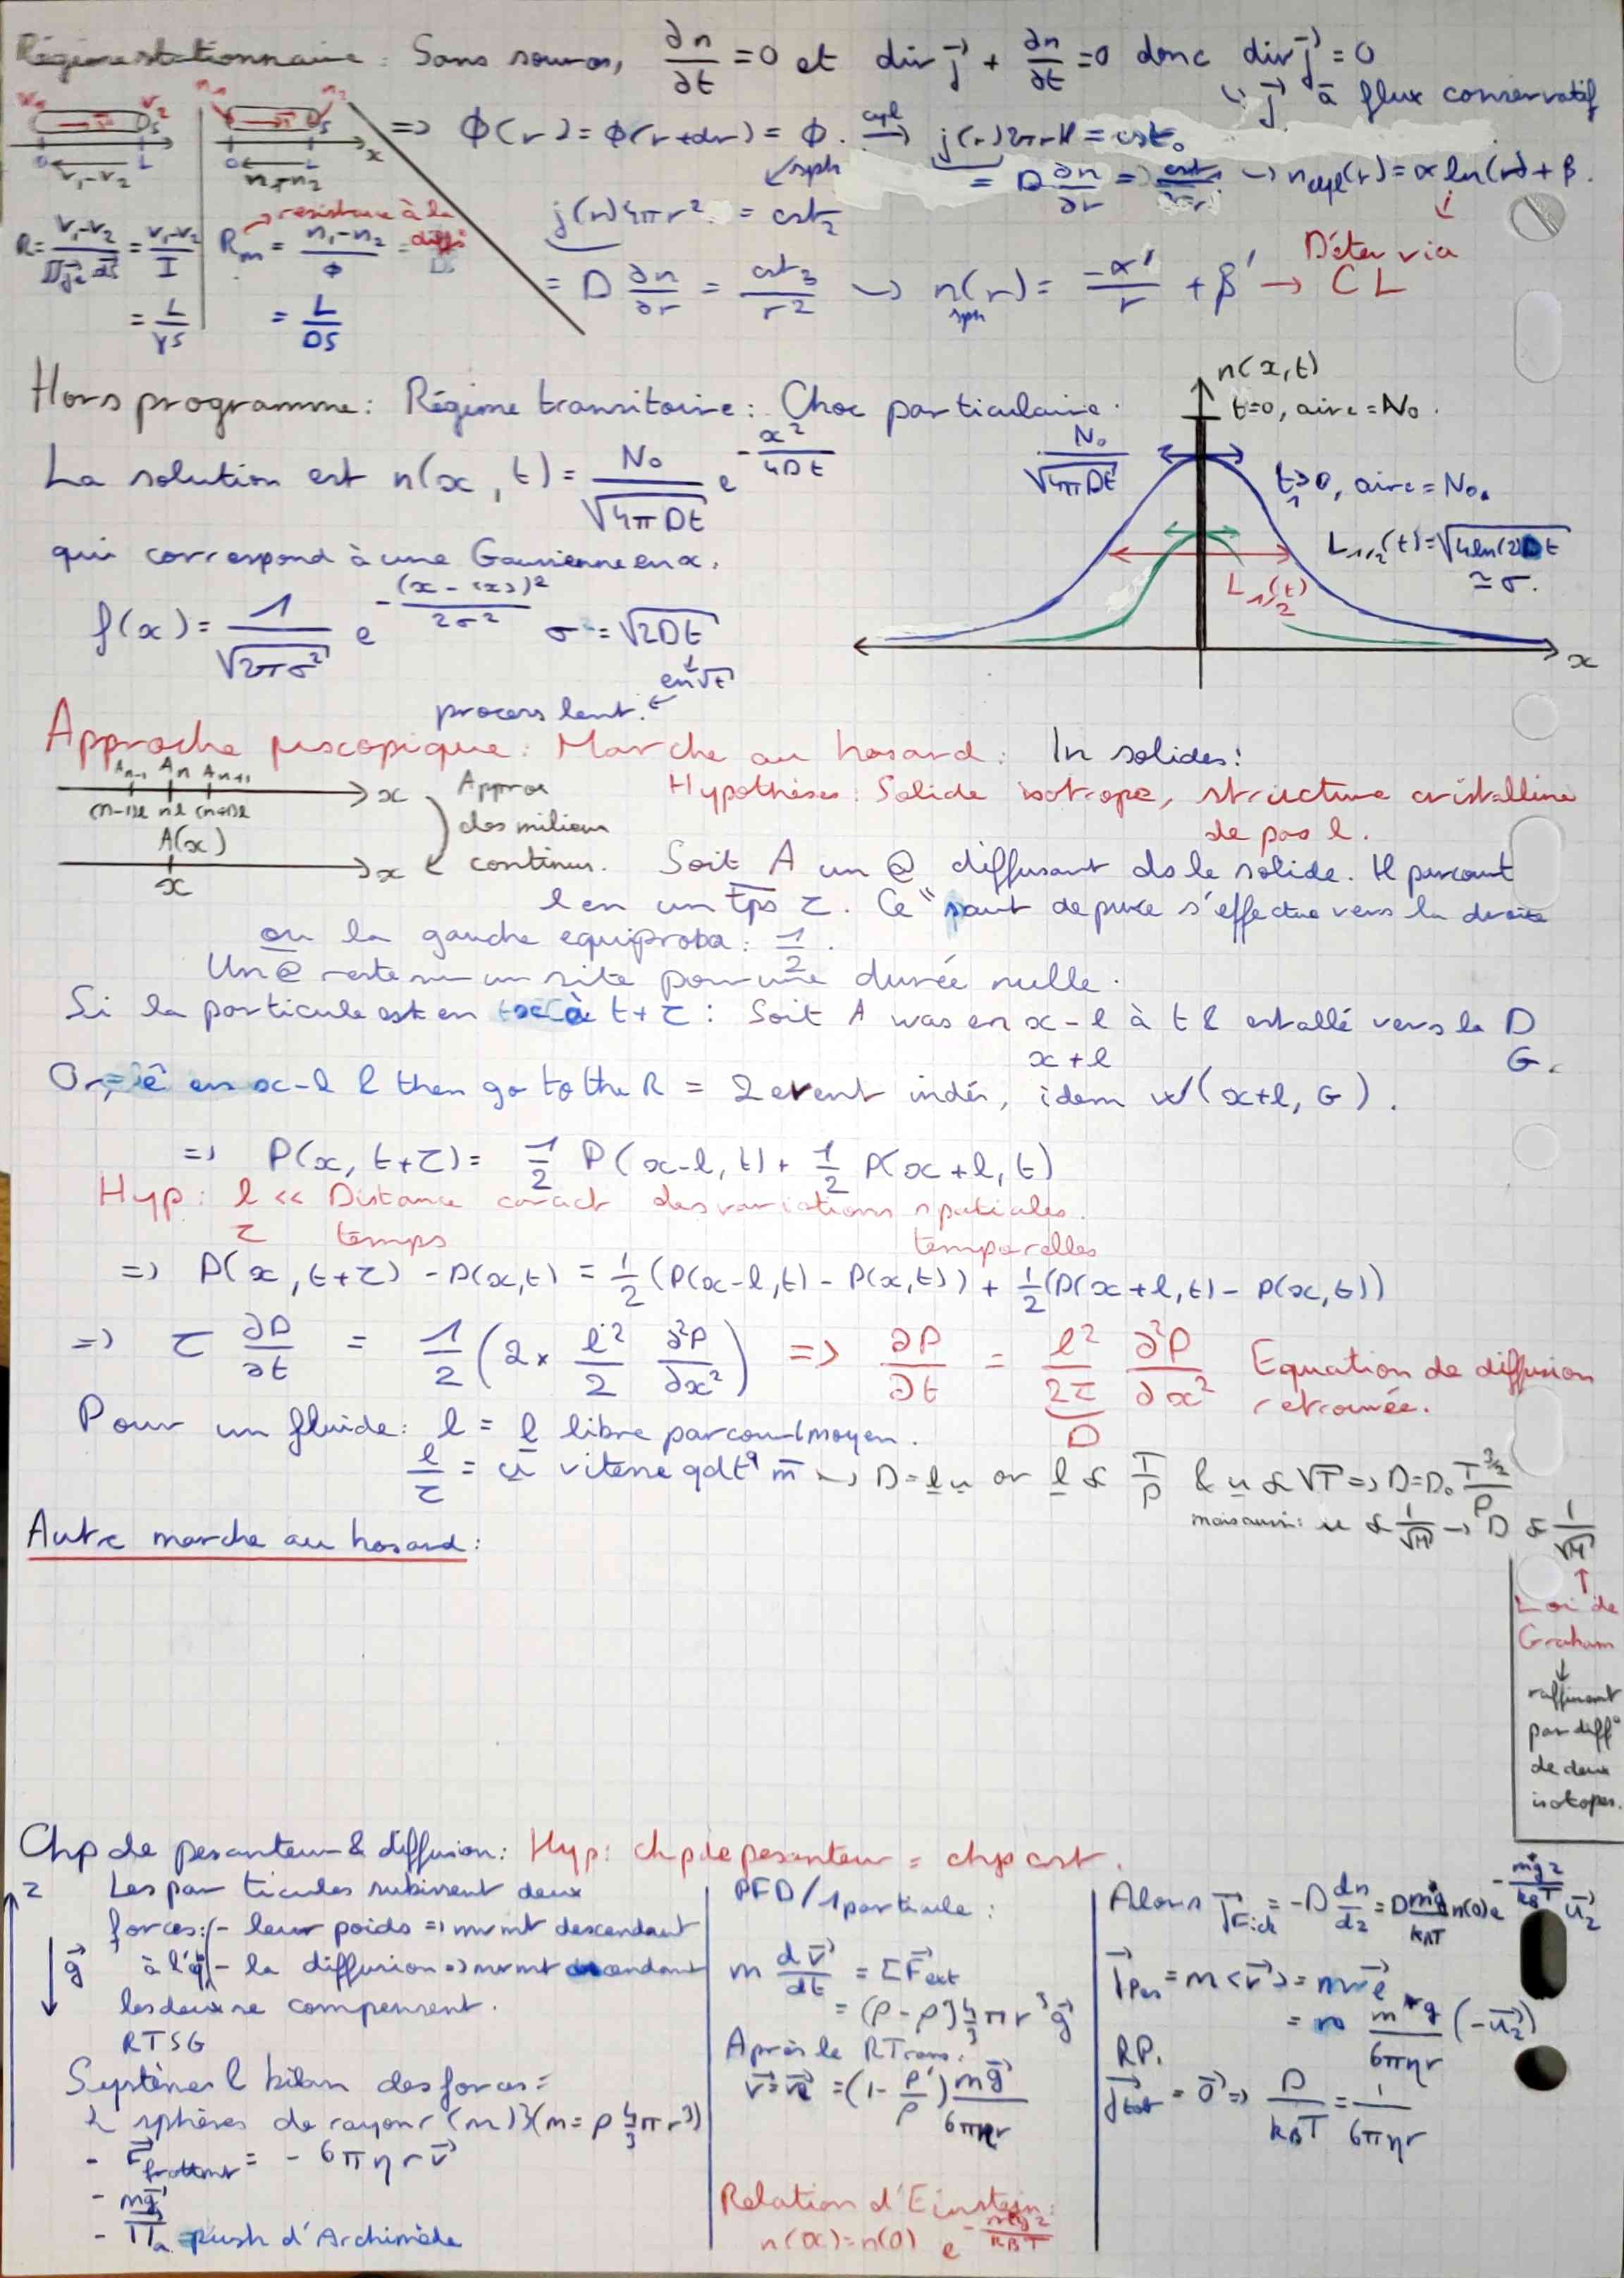 Régime stationnaire : Sans sources, ∂n/∂t = 0 et div j⃗ + ∂n/∂t = 0 donc div j⃗ = 0
↳ j⃗ à flux conservatif
V₁ V₂ n₁ n₂
0 L 0 L x
V₁-V₂ n₁-n₂
=> Φ(r) = Φ(r+dr) = Φ. cyl→ j(r)2πrH = cst₀
= D ∂n/∂r => ↪ n_cyl(r) = α ln(r) + β.
↙sph
j(r)4πr² = cst₂
= D ∂n/∂r = cst₃/r² ↪ n_sph(r) = -α'/r + β' → CL
Déter via
R = (V₁-V₂)/∬j⃗.dS⃗ = (V₁-V₂)/I
= L/γS
résistance à la diff°
Rm = (n₁-n₂)/Φ
= L/DS
Hors programme : Régime transitoire : Choc particulaire.
La solution est n(x,t) = N₀/√(4πDt) e^(-x²/4Dt)
qui correspond à une Gaussienne en x.
f(x) = 1/√(2πσ²) e^(-(x-<x>)²/2σ²) σ = √2Dt
en √t
process lent. ←
n(x,t)
t=0, aire = N₀.
N₀/√(4πDt)
t₁>0, aire = N₀.
L1/2(t) = √(4ln(2)Dt
≃ σ.
L1/2(t)
x
Approche μscopique : Marche au hasard : In solides :
An-1 An An+1
x
(n-1)l nl (n+1)l
A(x)
x
x
Approx
des milieux
continus.
Hypothèses : Solide isotrope, structure cristalline
de pas l.
Soit A un @ diffusant ds le solide. Il parcourt
l en un tps τ. Ce "saut de puce s'effectue vers la droite
ou la gauche equiproba : 1/2.
Un @ reste sur un site pour une durée nulle.
Si la particule est en x à t+τ : Soit A was en x-l à t & est allé vers la D
x+l G.
Or, ê en x-l & then go to the R = 2 event indés, idem w/ (x+l, G).
=> P(x, t+τ) = 1/2 P(x-l, t) + 1/2 P(x+l, t)
Hyp : l << Distance caract des variations spatiales.
τ temps temporelles
=> P(x, t+τ) - P(x,t) = 1/2 (P(x-l,t) - P(x,t)) + 1/2 (P(x+l,t) - P(x,t))
=> τ ∂P/∂t = 1/2 (2 × l²/2 ∂²P/∂x²) => ∂P/∂t = l²/2τ ∂²P/∂x² Equation de diffusion
D retrouvée.
Pour un fluide : l = l libre parcours moyen.
l/τ = u vitesse qdt° m̄ ↪ D = l u or l ∝ T/P & u ∝ √T => D = D₀ T^(3/2)/P
mais aussi : u ∝ 1/√M → D ∝ 1/√M
Autre marche au hasard :
↑
Loi de
Graham
↓
raffinemt
par diff°
de deux
isotopes.
Chp de pesanteur & diffusion : Hyp : chp de pesanteur = chp cst.
z
g⃗
Les particules subissent deux
forces : - leur poids => mvmt descendant
à l'éq - la diffusion => mvmt
les deux se compensent.
RTSG
Systèmes & bilan des forces :
sphères de rayon r (m) (m = ρ 4/3 πr³)
- F⃗frottemt = - 6πηr v⃗
- mg⃗
- Π⃗a = push d'Archimède
PFD/1 particule :
m dv⃗/dt = ΣF⃗ext
= (ρ - ρ') 4/3 πr³ g⃗
Après le RTrans :
v⃗ = v⃗l = (1 - ρ'/ρ) mg⃗/6πηr
Relation d'Einstein :
n(x) = n(0) e^(-m*gz/kBT)
Alors j⃗Fick = -D dn/dz = D m*g/kBT n(0) e^(-m*gz/kBT) u⃗z
j⃗Pes = n<v⃗> = nv⃗l
= n m*g/6πηr (-u⃗z)
RP.
j⃗tot = 0⃗ => D/kBT = 1/6πηr